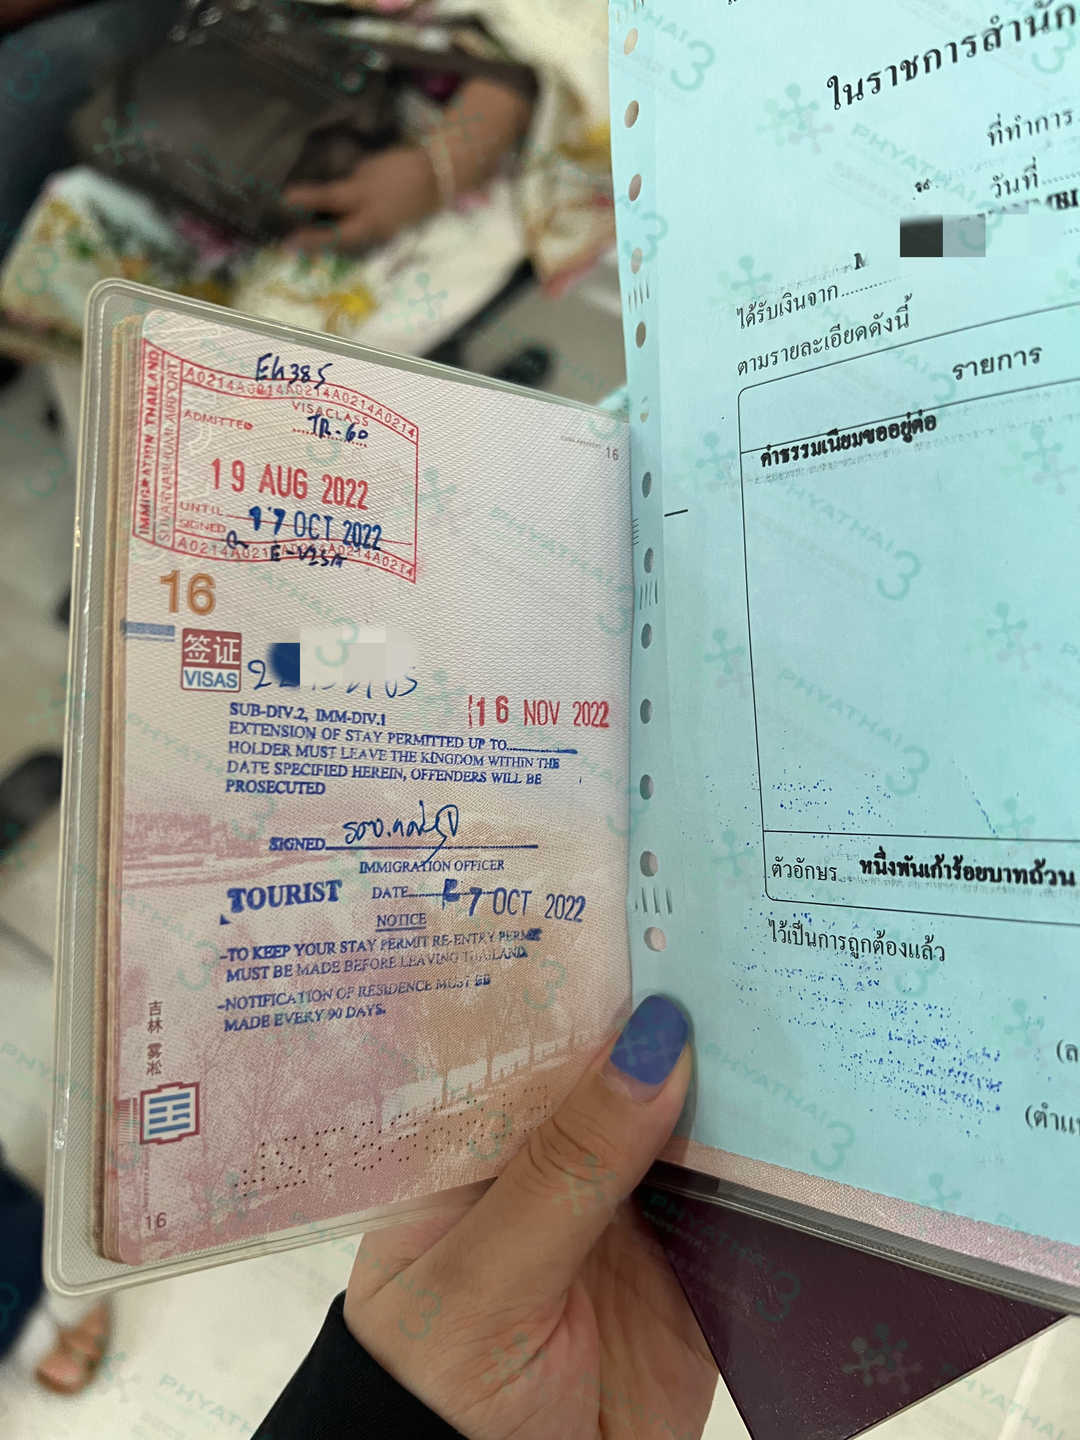 EK385
A0214A0214A0214A0214A0214
IMMIGRATION THAILAND
SUVARNABHUMI AIRPORT
VISA CLASS
ADMITTED
TR-60
19 AUG 2022
UNTIL
17 OCT 2022
SIGNED
E-VISA
16
16
签证
VISAS
SUB-DIV.2, IMM-DIV.1
16 NOV 2022
EXTENSION OF STAY PERMITTED UP TO
HOLDER MUST LEAVE THE KINGDOM WITHIN THE
DATE SPECIFIED HEREIN, OFFENDERS WILL BE
PROSECUTED
SIGNED
IMMIGRATION OFFICER
TOURIST
DATE
7 OCT 2022
NOTICE
-TO KEEP YOUR STAY PERMIT RE-ENTRY PERMIT
MUST BE MADE BEFORE LEAVING THAILAND
-NOTIFICATION OF RESIDENCE MUST BE
MADE EVERY 90 DAYS.
吉林 雾凇
16
ในราชการสำนัก
ที่ทำการ
วันที่
ได้รับเงินจาก
ตามรายละเอียดดังนี้
รายการ
ค่าธรรมเนียมขออยู่ต่อ
ตัวอักษร หนึ่งพันเก้าร้อยบาทถ้วน
ไว้เป็นการถูกต้องแล้ว
PHYATHAI 3